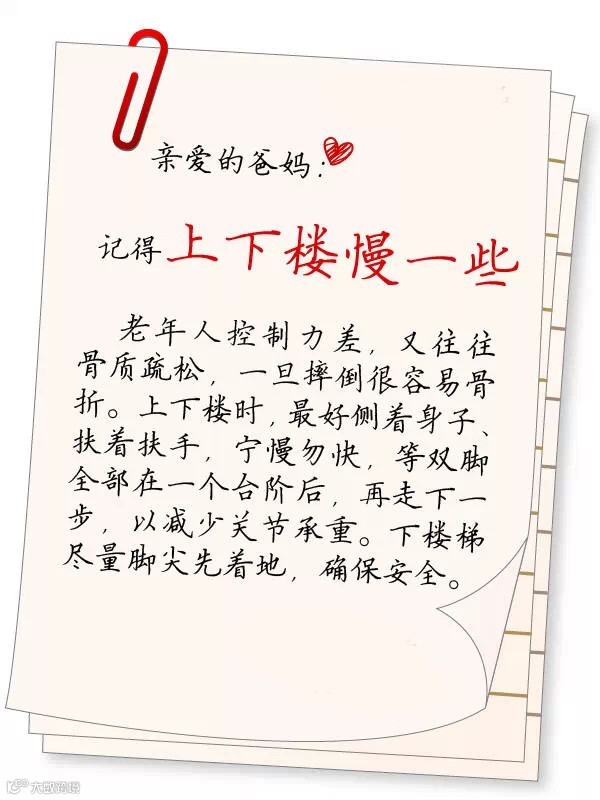 亲爱的爸妈：
记得上下楼慢一些
老年人控制力差，又往往
骨质疏松，一旦摔倒很容易骨
折。上下楼时，最好侧着身子、
扶着扶手，宁慢勿快，等双脚
全部在一个台阶后，再走下一
步，以减少关节承重。下楼梯
尽量脚尖先着地，确保安全。
大数跨境